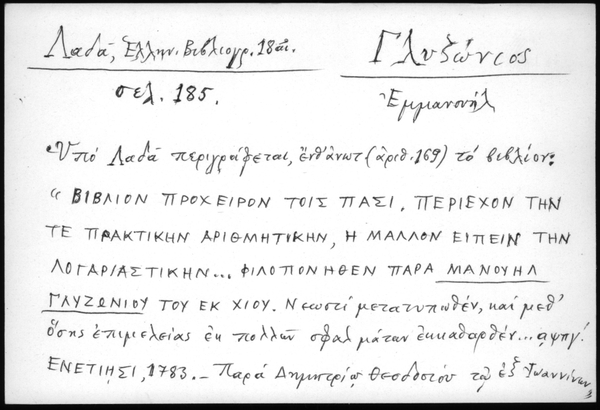 Λαδᾶ, Ἑλλην. Βιβλιογρ. 18 αἰ.
σελ. 185.
Γλυζώνιος
Ἐμμανουήλ
Ὑπό Λαδᾶ περιγράφεται, ἔνθ' ἀνωτ. (ἀριθ. 169) τό βιβλίον:
"ΒΙΒΛΙΟΝ ΠΡΟΧΕΙΡΟΝ ΤΟΙΣ ΠΑΣΙ, ΠΕΡΙΕΧΟΝ ΤΗΝ
ΤΕ ΠΡΑΚΤΙΚΗΝ ΑΡΙΘΜΗΤΙΚΗΝ, Η ΜΑΛΛΟΝ ΕΙΠΕΙΝ ΤΗΝ
ΛΟΓΑΡΙΑΣΤΙΚΗΝ... ΦΙΛΟΠΟΝΗΘΕΝ ΠΑΡΑ ΜΑΝΟΥΗΛ
ΓΛΥΖΩΝΙΟΥ ΤΟΥ ΕΚ ΧΙΟΥ. Νεωστί μετατυπωθέν, καί μεθ'
ὅσης ἐπιμελείας ἐκ πολλῶν σφαλμάτων ἐκκαθαρθέν... αψπγ!
ΕΝΕΤΙΗΣΙ, 1783. – Παρά Δημητρίῳ Θεοδοσίου τῷ ἐξ Ἰωαννίνων